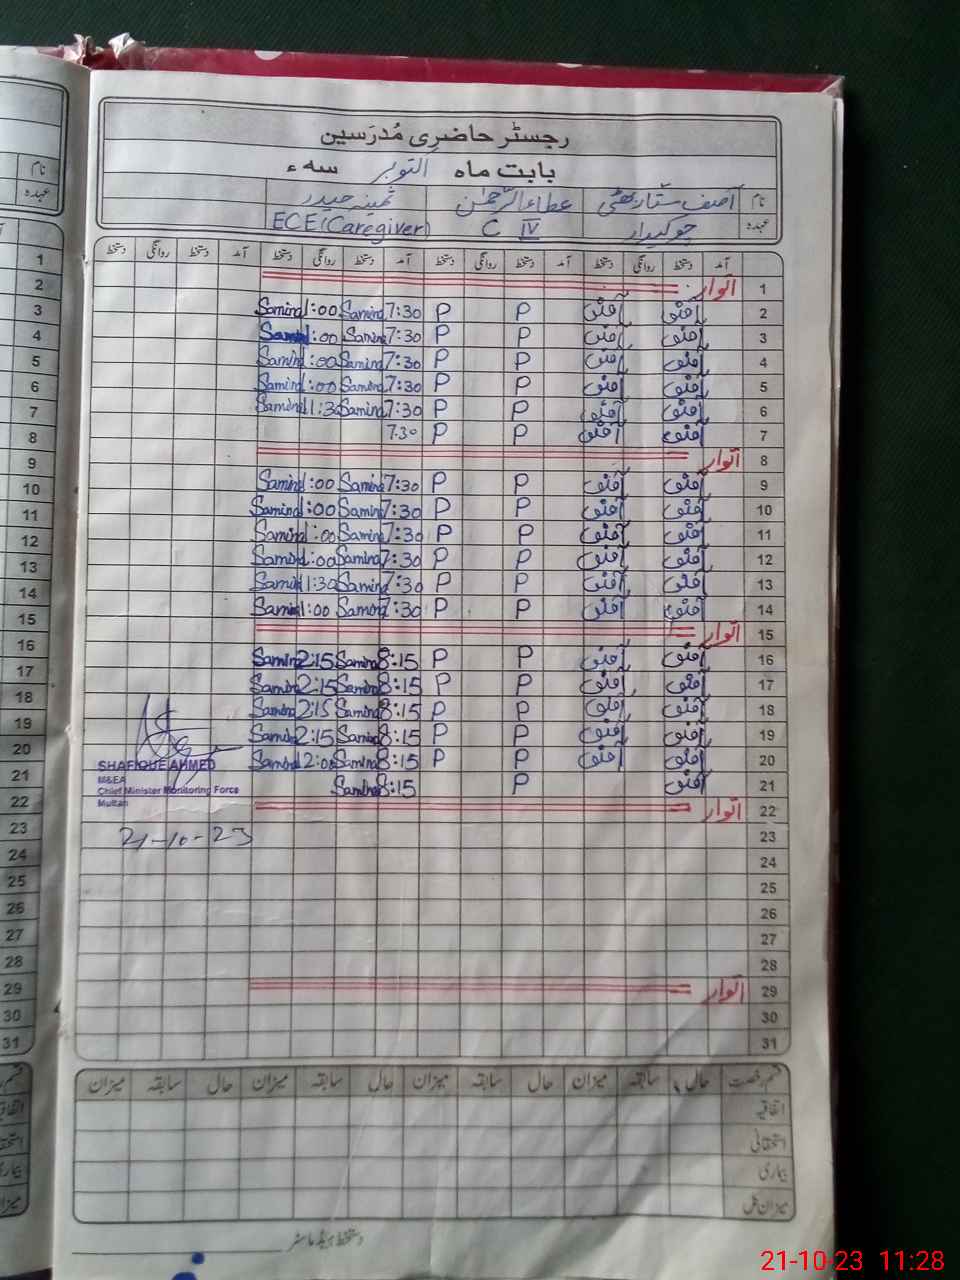 رجسٹر حاضری مُدرّسین
بابت ماہ اکتوبر سہ ء
نام آصف ستار بھٹی عطاء الرحمٰن ثمینہ حیدر
عہدہ چوکیدار C IV ECE (Caregiver)
آمد دستخط روانگی دستخط آمد دستخط روانگی دستخط آمد دستخط روانگی دستخط آمد دستخط روانگی دستخط
1 اتوار
2 P P 7:30 Samina 1:00 Samina
3 P P 7:30 Samina 1:00 Samina
4 P P 7:30 Samina 1:00 Samina
5 P P 7:30 Samina 1:00 Samina
6 P P 7:30 Samina 1:30 Samina
7 P P 7:30
8 اتوار
9 P P 7:30 Samina 1:00 Samina
10 P P 7:30 Samina 1:00 Samina
11 P P 7:30 Samina 1:00 Samina
12 P P 7:30 Samina 1:00 Samina
13 P P 7:30 Samina 1:30 Samina
14 P P 7:30 Samina 1:00 Samina
15 اتوار
16 P P 8:15 Samina 2:15 Samina
17 P P 8:15 Samina 2:15 Samina
18 P P 8:15 Samina 2:15 Samina
19 P P 8:15 Samina 2:15 Samina
20 P P 8:15 Samina 12:00 Samina
21 P 8:15 Samina
22 اتوار
23
24
25
26
27
28
29 اتوار
30
31
SHAFIQUE AHMED
M&EA
Chief Minister Monitoring Force
Multan
21-10-23
قسم رخصت حال سابقہ میزان حال سابقہ میزان حال سابقہ میزان حال سابقہ میزان
اتفاقیہ
استحقاقی
بیماری
میزان کل
دستخط ہیڈ ماسٹر
نام
عہدہ
1
2
3
4
5
6
7
8
9
10
11
12
13
14
15
16
17
18
19
20
21
22
23
24
25
26
27
28
29
30
31
21-10-23 11:28